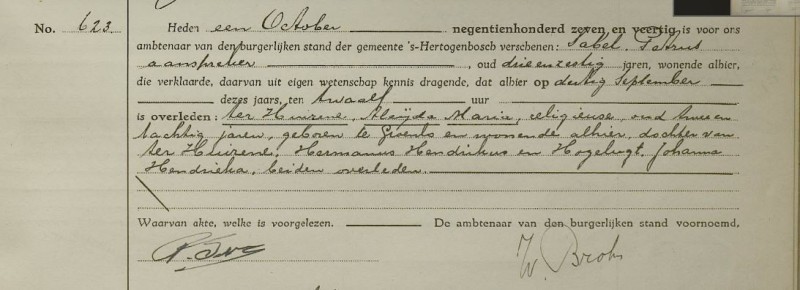 No. 623. Heden een October negentienhonderd zeven en veertig is voor ons
ambtenaar van den burgerlijken stand der gemeente 's-Hertogenbosch verschenen: Sabel, Petrus
aanspreker, oud drieenzestig jaren, wonende alhier,
die verklaarde, daarvan uit eigen wetenschap kennis dragende, dat alhier op dertig September
dezes jaars, ten twaalf uur
is overleden: ter Huizene, Aleijda Maria, religieuse, oud twee en
tachtig jaren, geboren te Groenlo en wonende alhier, dochter van
ter Huizene, Hermanus Hendrikus en Hogelugt, Johanna
Hendrieka, beiden overleden.
Waarvan akte, welke is voorgelezen. De ambtenaar van den burgerlijken stand voornoemd,
W. Broh